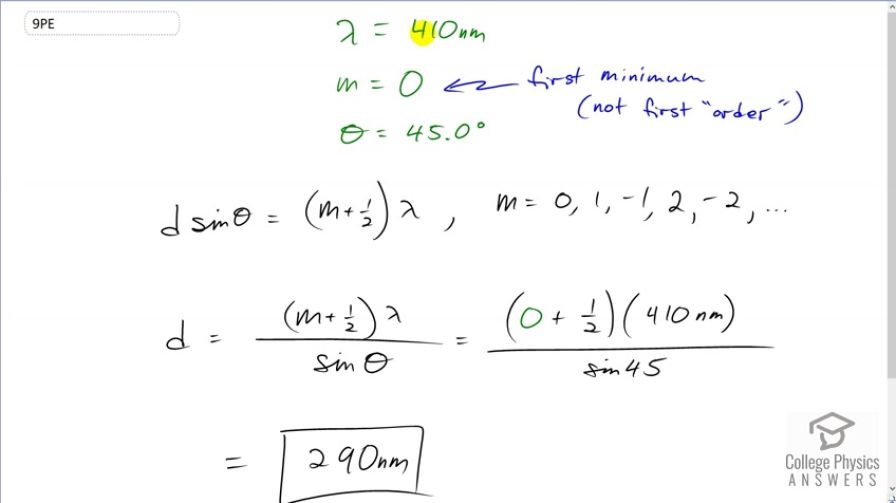 9PE
λ = 410nm
m = 0 ← first minimum
(not first "order")
θ = 45.0°
d sinθ = (m + 1/2) λ , m = 0, 1, -1, 2, -2, ...
d = (m + 1/2) λ / sin θ = (0 + 1/2)(410 nm) / sin 45
= 290nm
College Physics
ANSWERS